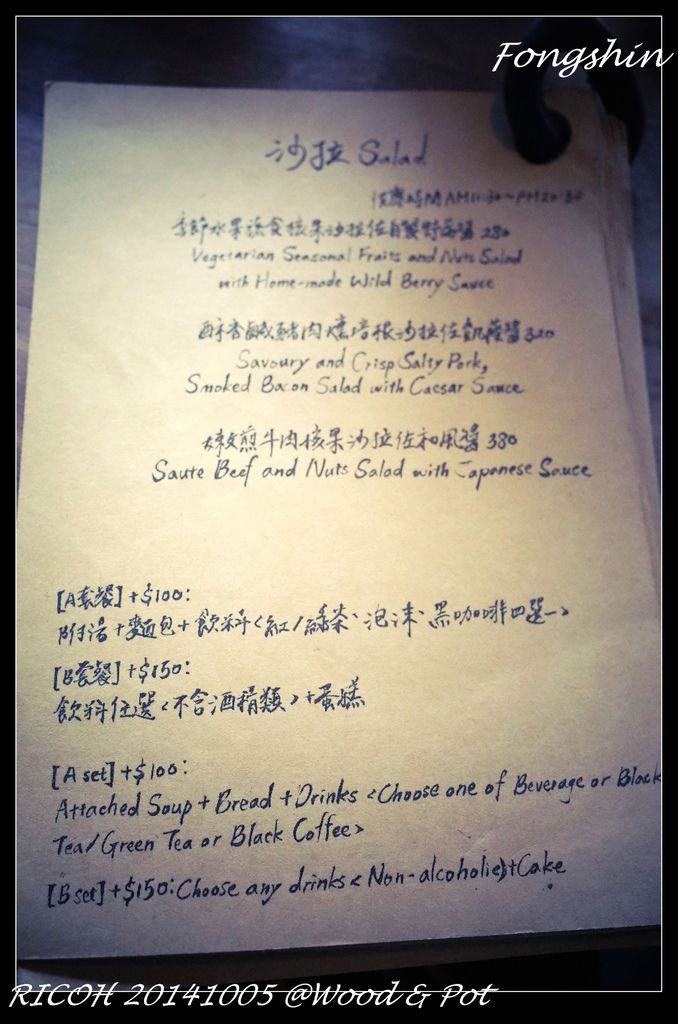 Fongshin
沙拉 Salad
供應時間AM11:30~PM20:30
季節水果蔬食核果沙拉佐自製野莓醬 280
Vegetarian Seasonal Fruits and Nuts Salad
with Home-made Wild Berry Sauce
酥香鹹豬肉燻培根沙拉佐凱薩醬 320
Savoury and Crisp Salty Pork,
Smoked Bacon Salad with Caesar Sauce
嫩煎牛肉核果沙拉佐和風醬 380
Saute Beef and Nuts Salad with Japanese Sauce
[A套餐] +$100:
附湯+麵包+飲料<紅/綠茶、泡沫、黑咖啡四選一>
[B套餐] +$150:
飲料任選<不含酒精類>+蛋糕
[A set] +$100:
Attached Soup + Bread + Drinks <Choose one of Beverage or Black
Tea/Green Tea or Black Coffee>
[B set] +$150: Choose any drinks < Non-alcoholic>+Cake
RICOH 20141005 @Wood & Pot